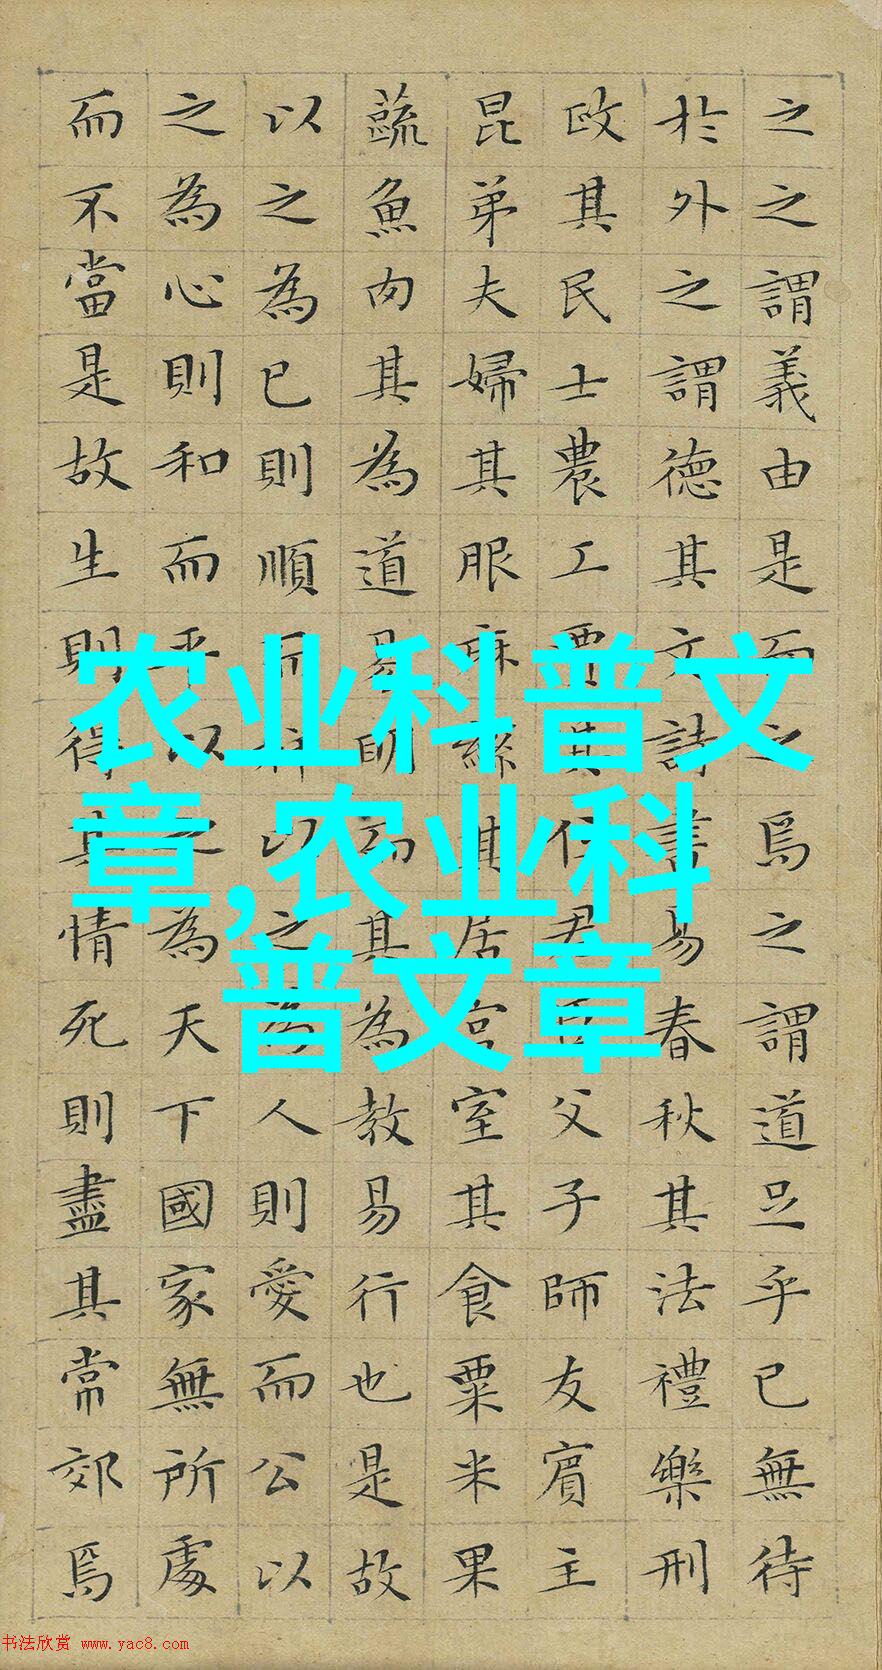 之之謂義由是而之焉之謂道足乎已無待
於外之謂德其文詩書易春秋其法禮樂刑
政其民士農工賈其位君臣父子師友賓主
昆弟夫婦其服麻絲其居宮室其食粟米果
蔬魚肉其為道易明而其為教易行也是故
以之為已則順而祥以之為人則愛而公以
之為心則和而平以之為天下國家無所處
而不當是故生則得其情死則盡其常郊焉
农业科普文
章,农业科
普文章
书法欣赏 www.yac8.com